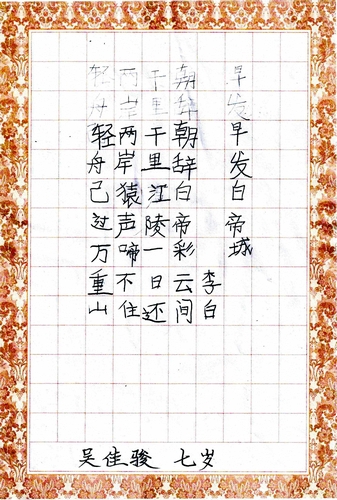 早发早发白帝城
李白
朝辞朝辞白帝彩云间
千里千里江陵一日还
两岸两岸猿声啼不住
轻舟轻舟己过万重山
吴佳骏 七岁